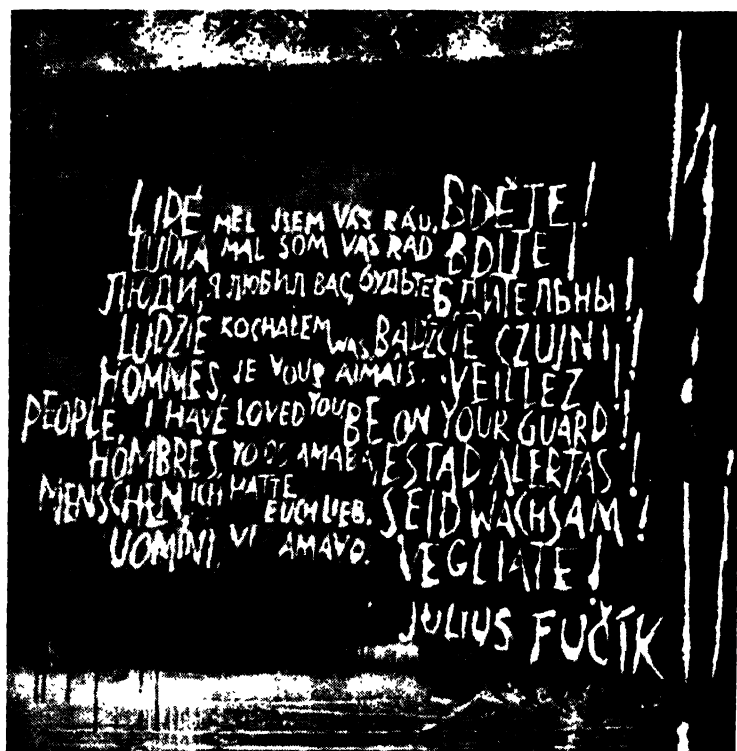 LIDÉ MĚL JSEM VÁS RÁD. BDĚTE!
ĽUDIA MAL SOM VAS RAD BDITE!
ЛЮДИ, Я ЛЮБИЛ ВАС, БУДЬТЕ БДИТЕЛЬНЫ!
LUDZIE KOCHAŁEM WAS. BĄDŹCIE CZUJNI!
HOMMES, JE VOUS AIMAIS. VEILLEZ!
PEOPLE, I HAVE LOVED YOU BE ON YOUR GUARD!
HOMBRES, YO OS AMABA, ESTAD ALERTAS!
MENSCHEN, ICH HATTE EUCH LIEB. SEID WACHSAM!
UOMINI, VI AMAVO. VEGLIATE!
JULIUS FUČÍK